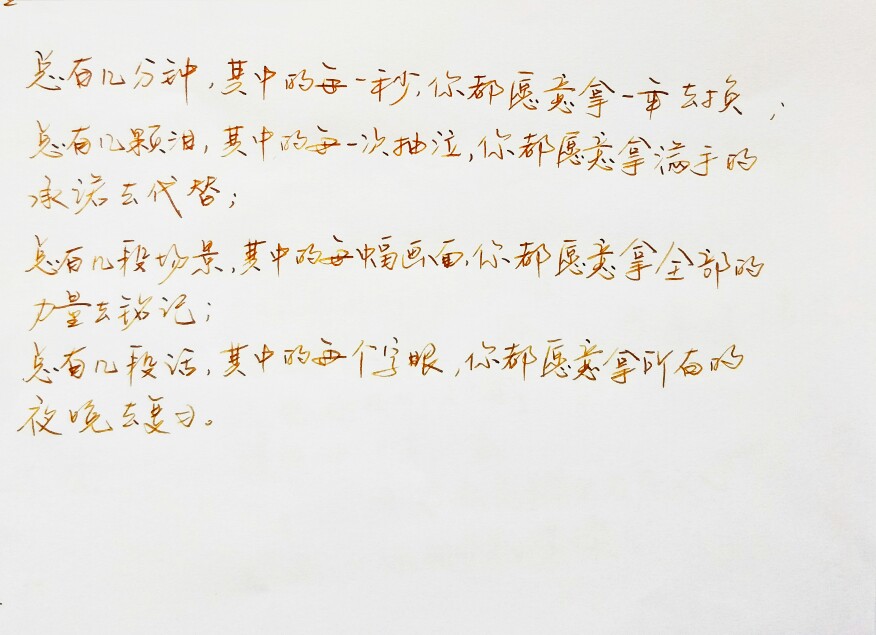 总有几分钟，其中的每一秒，你都愿意拿一年去换；
总有几颗泪，其中的每一次抽泣，你都愿意拿满手的
承诺去代替；
总有几段场景，其中的每幅画面，你都愿意拿全部的
力量去铭记；
总有几段话，其中的每个字眼，你都愿意拿所有的
夜晚去复习。